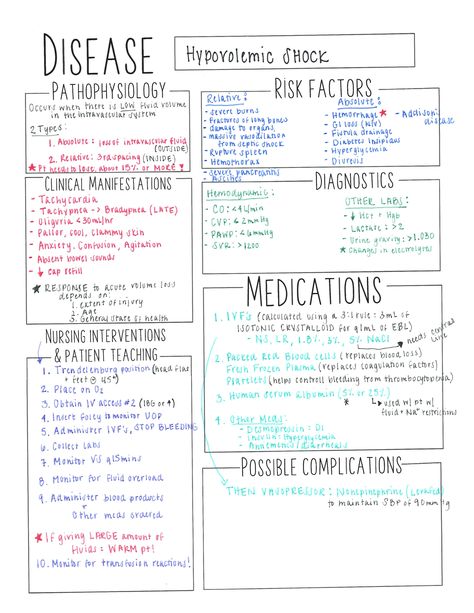 DISEASE
Hypovolemic Shock
PATHOPHYSIOLOGY
Occurs when there is LOW fluid volume
in the intravascular system
2 Types:
1. Absolute: loss of intravascular fluid
(OUTSIDE)
2. Relative: 3rd spacing (INSIDE)
★ Pt needs to lose about 15% or MORE!
RISK FACTORS
Relative:
- severe burns
- fractures of long bones
- damage to organs,
massive vasodilation
from septic shock
- Rupture spleen
- Hemothorax
- severe pancreatitis
- Ascites
Absolute:
- Hemorrhage ★
- GI loss (N/V)
- Fistula drainage
- Diabetes Insipidus
- Hyperglycemia
- Diuresis
- Addisons disease
CLINICAL MANIFESTATIONS
- Tachycardia
- Tachypnea → Bradypnea (LATE)
- Oliguria <30ml/hr
- Pallor, cool, clammy skin
- Anxiety, Confusion, Agitation
- Absent bowel sounds
- ↓ cap refill
★ RESPONSE to acute volume loss
depends on:
1. extent of injury
2. Age
3. General state of health
DIAGNOSTICS
Hemodynamic:
- CO: <4L/min
- CVP: <2mmHg
- PAWP: <6mmHg
- SVR: >1200
OTHER LABS:
- ↓ Hct + Hgb
- Lactate: >2
- Urine gravity: >1.030
★ Changes in electrolytes
MEDICATIONS
1. IVF's (calculated using a 3:1 rule: 3mL of
ISOTONIC CRYSTALLOID for q1mL of EBL)
- NS, LR, 1.8%, 3%, 5% NaCl
needs central line
2. Packed Red Blood cells (replaces blood loss)
Fresh Frozen Plasma (replaces coagulation factors)
Platelets (helps control bleeding from thrombocytopenia)
3. Human Serum Albumin (5% or 25%)
↳ used w/ pt w/
fluid + Na⁺ restrictions
4. Other Meds:
- Desmopressin: DI
- Insulin: Hyperglycemia
- Antiemetics/diarrheals
NURSING INTERVENTIONS
& PATIENT TEACHING
1. Trendelenburg position (head flat
+ feet @ 45°)
2. Place on O2
3. Obtain IV access x2 (18G or ↑)
4. Insert foley to monitor UOP
5. Administer IVF's, STOP BLEEDING
6. Collect Labs
7. Monitor VS q15mins
8. Monitor for fluid overload
9. Administer blood products
+
Other meds ordered
★ If giving LARGE amount of
fluids: WARM pt!
10. Monitor for transfusion reactions!
POSSIBLE COMPLICATIONS
THEN VASOPRESSOR: Norepinephrine
to maintain SBP of 90mmHg